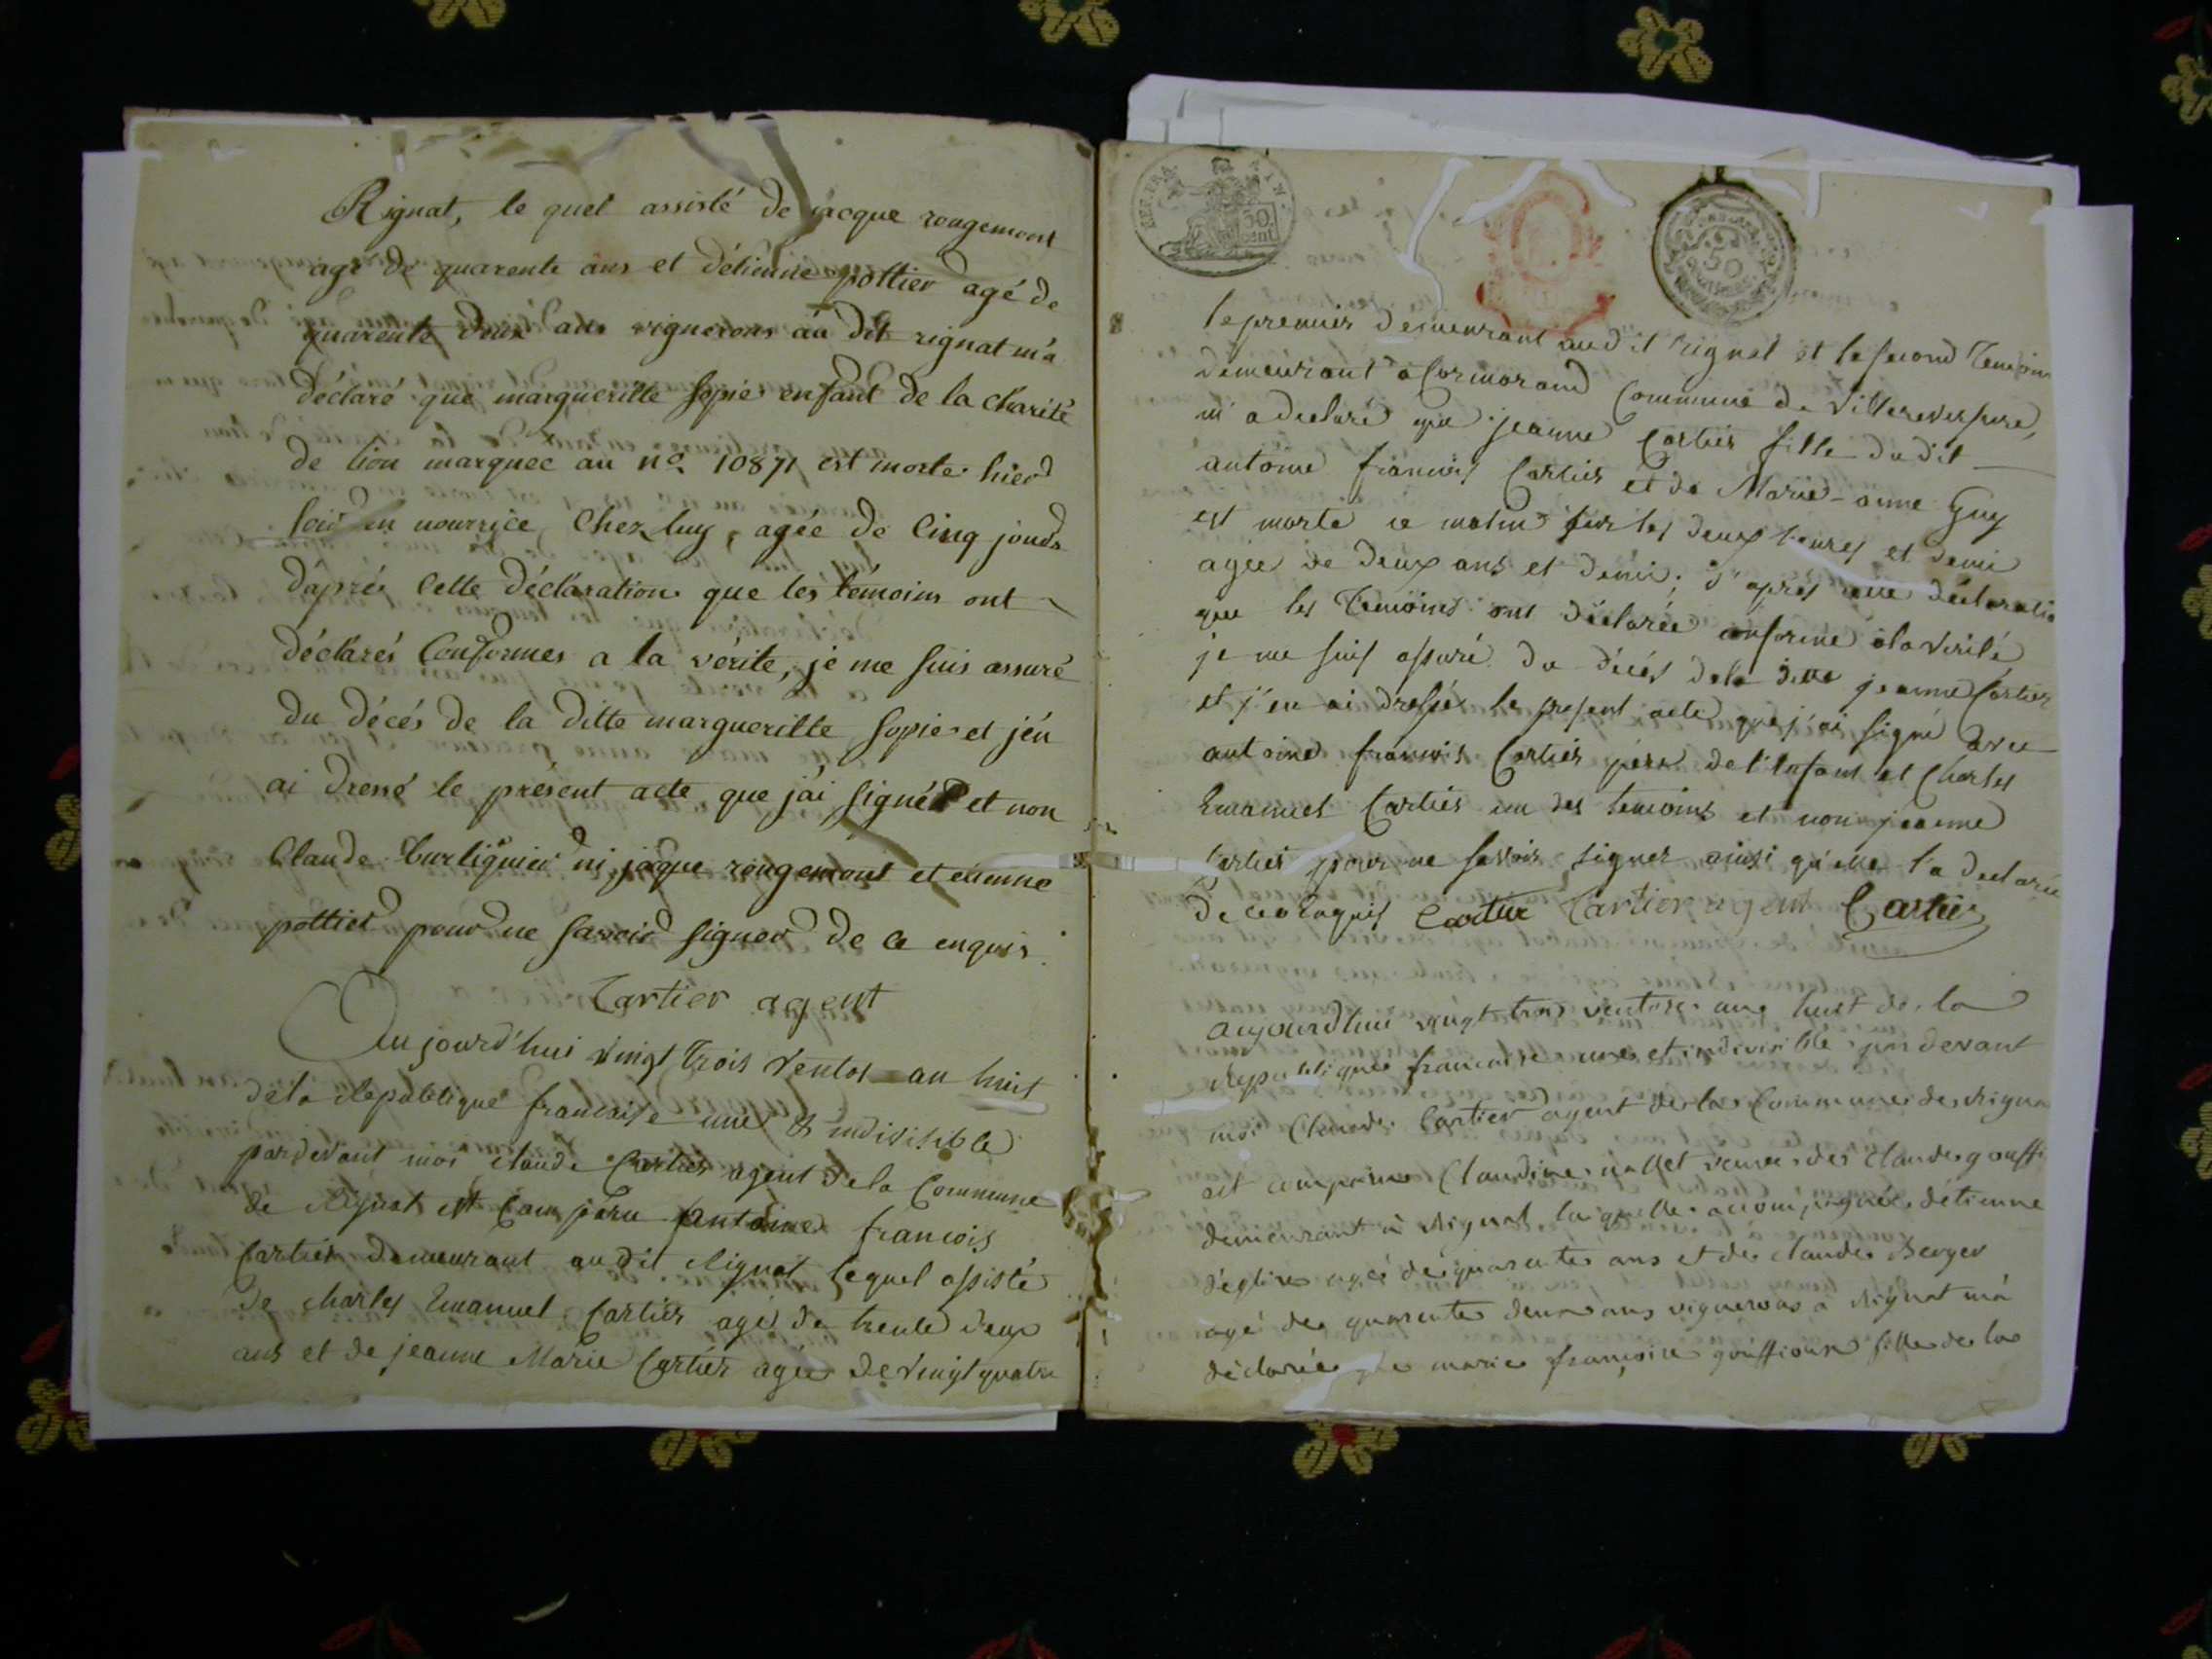 Rignat, le quel assisté de jacque rougemont
agé de quarente ans et détienne pottier agé de
quarente deux ans vignerons au dit rignat m'a
déclaré que margueritte sopie enfant de la charité
de lion marquee au no. 10871 est morte hier
soir en nourrice Chez luy, agée de Cinq jours
d'aprés Cette déclaration que les témoins ont
déclarés Conformes a la vérite, je me suis assuré
du décés de la ditte margueritte sopie et j'én
ai dressé le présent acte que j'ai signé et non
Claude ni jaque rougemont et etienne
pottier pour ne savoir signer de ce enquis.
Cartier agent
Aujourd'hui vingt trois Ventos an huit
de la Republique francaise une & indivisible
pardevant moi claude Cartier agent de la Commune
de Rignat est Comparu Antoine francois
Cartier demeurant audit Rignat lequel assisté
de Charles Emanuel Cartier agé de trente deux
ans et de jeanne Marie Cartier agée de Vingt quatre
REP. FRA.
50
cent
50
le premier demeurant audit rignat et le second Temoin
demeurant a Cormorand Commune de Villereversure,
m'a declaré que jeanne Cartier fille du dit
antoine francois Cartier et de Marie-anne Guy
est morte ce matin sur les deux heures et demi
agée de deux ans et demi; d'aprés cette déclaratio
que les Temoins ont déclarée conforme a la vérité
je me suis assuré du décés de la ditte jeanne Cartier
et j'en ai dressé le present acte que j'ai signé avec
antoine francois Cartier pére de l'Enfant et Charles
Emanuel Cartier un des temoins et non jeanne
Cartier pour ne savoir signer ainsi qu'elle l'a declarée
de ce Enquis Cartier Cartier agent Cartier
aujourdhui vingt trois ventose ans huit de la
Republique francaise une et indivisible par devant
moi Claude Cartier agent de la Commune de Rigna
est comparue Claudine veuve de Claude gouffi
demeurant à Rignat laquelle accompagnée détienne
agé de quarente ans et de claude Berger
agé de quarente deux ans vignerons a Rignat m'a
déclarée que marie françoise fille de la